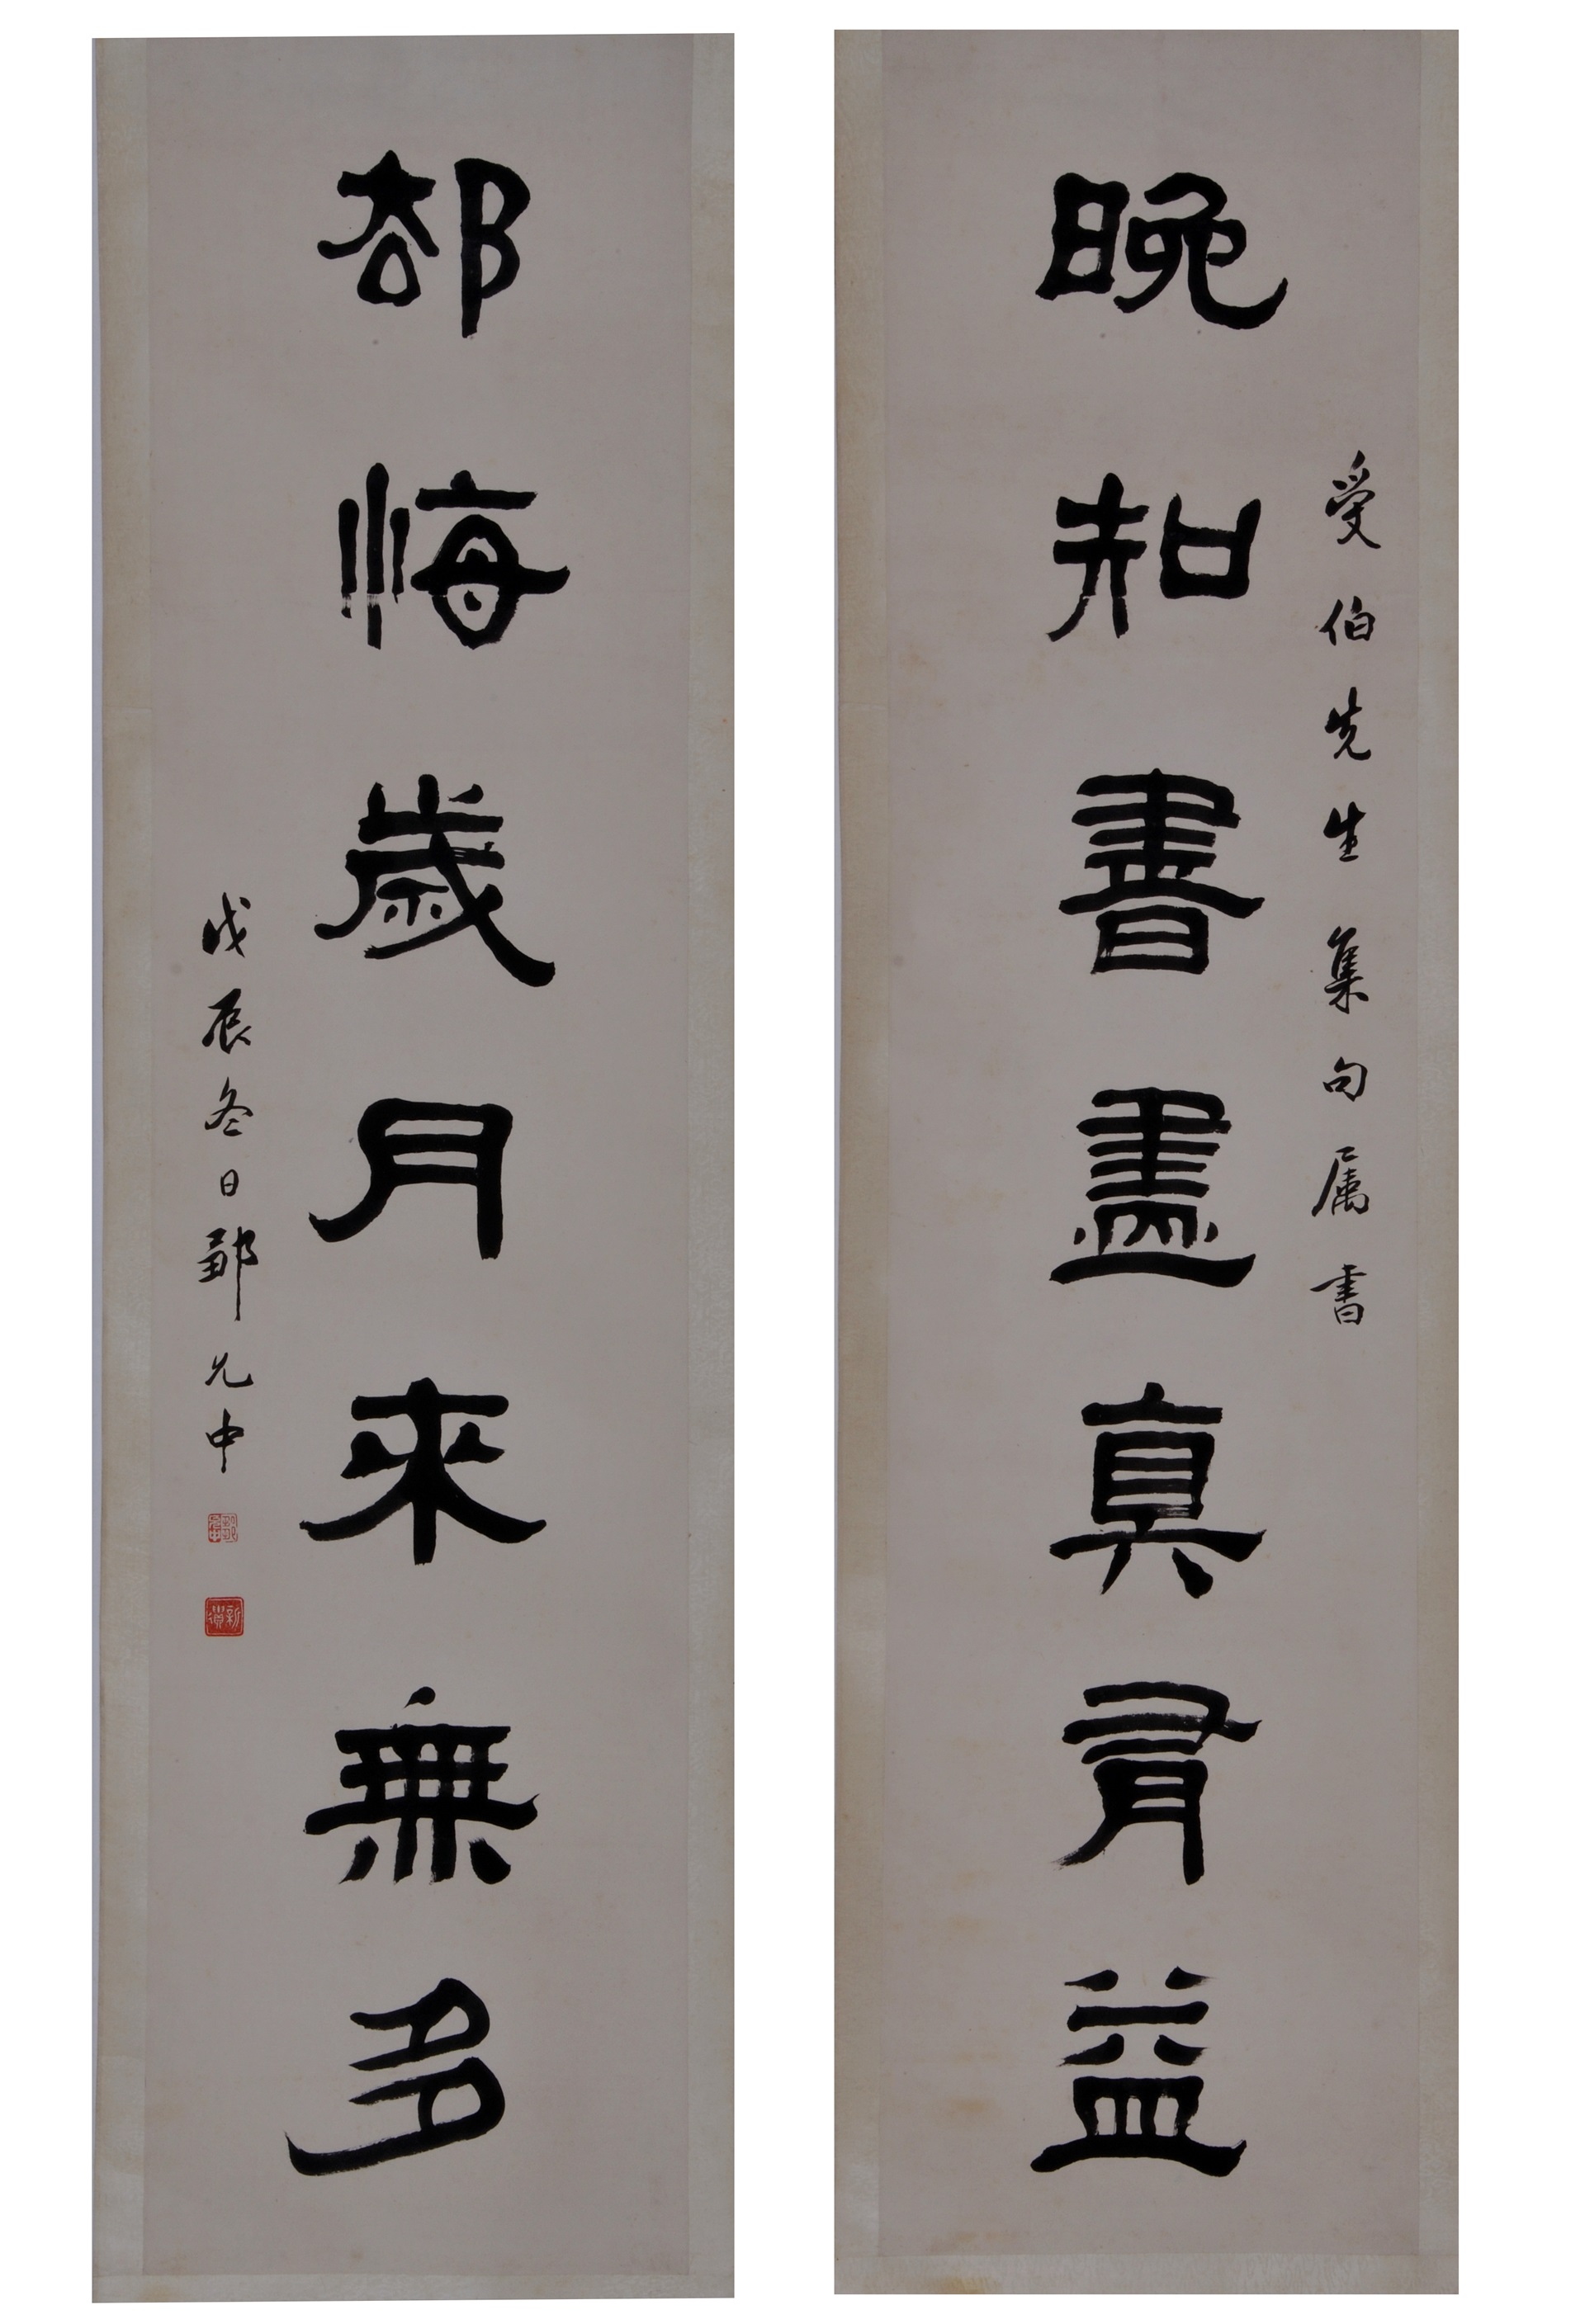 受伯先生集句属書
晚知書盡真有益
却悔歲月來無多
戊辰冬日鄒允中